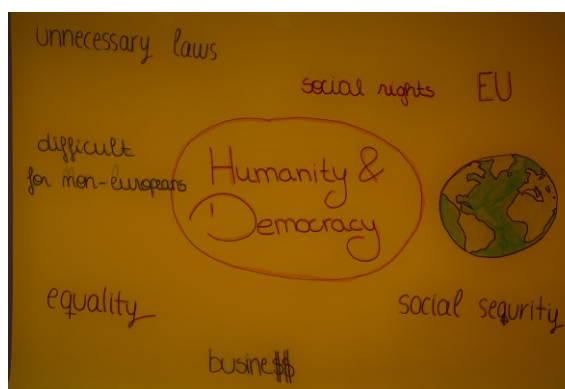 unnecessary laws
social rights EU
difficult
for non-europeans
Humanity &
Democracy
equality
social sequrity
busine$$